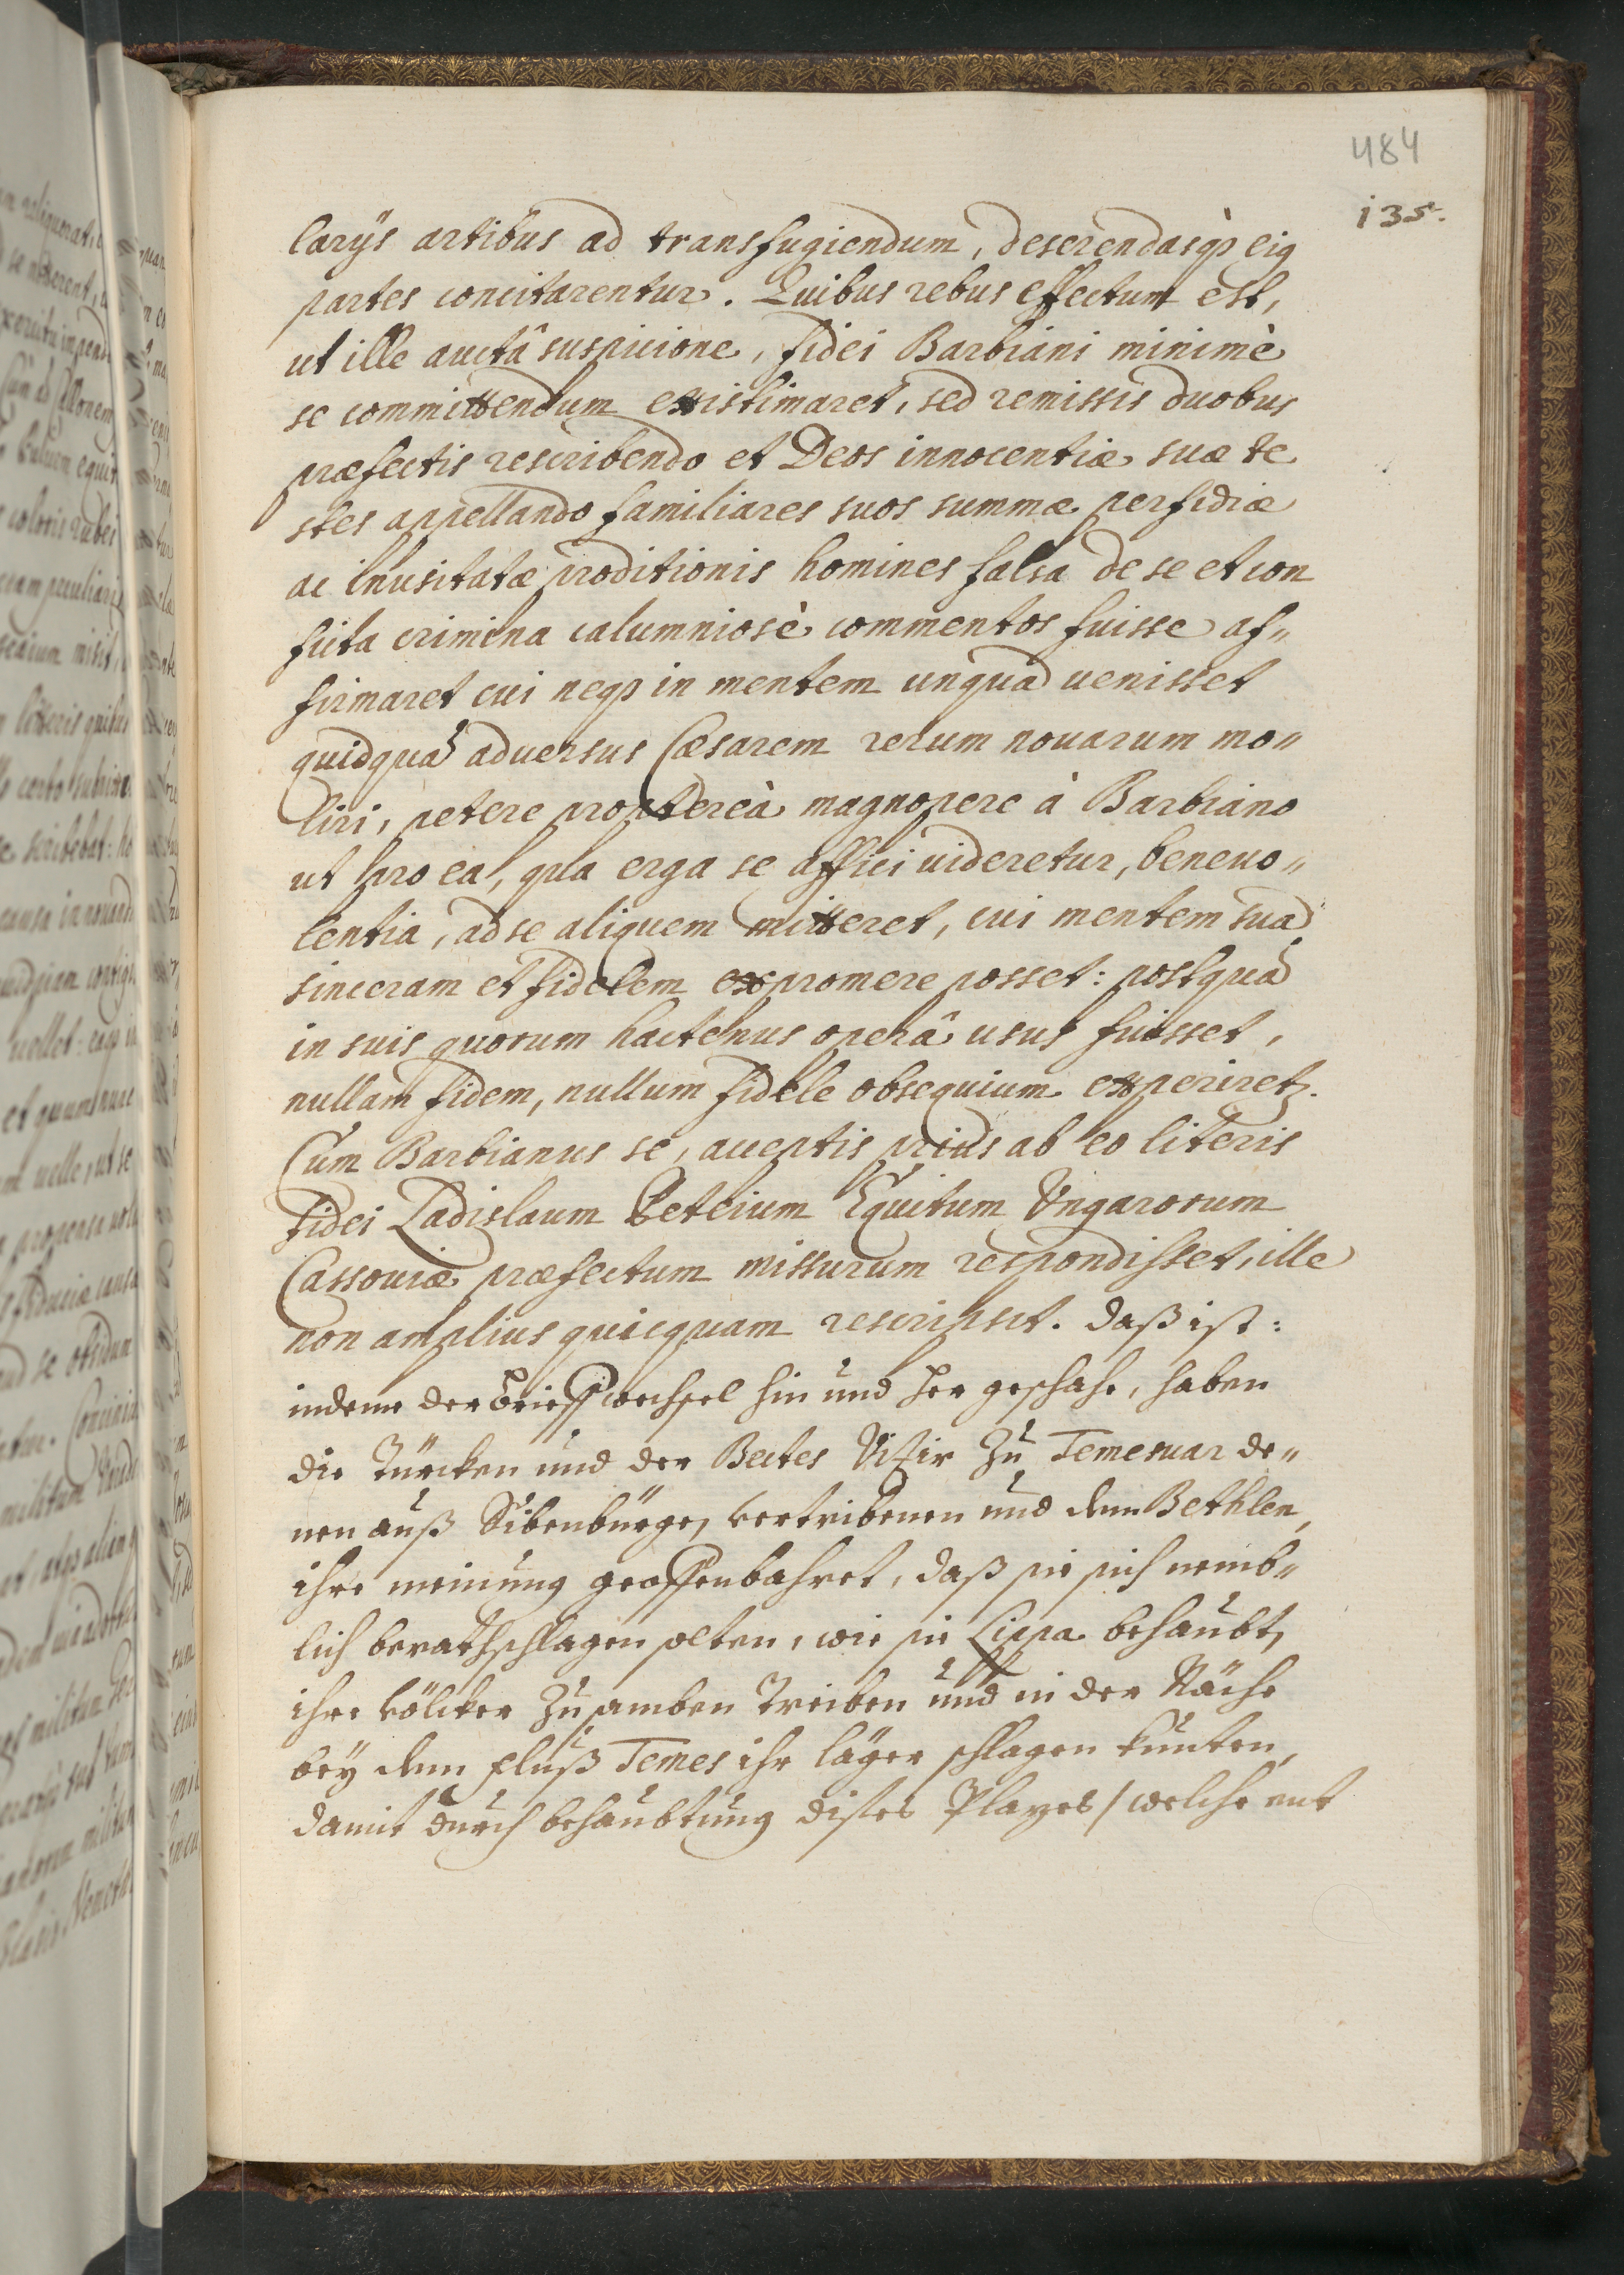 484
135.
larÿs artibus ad transfugiendum, deserendasqꝫ eiꝰ
partes concitarentur. Quibus rebus effectum est,
ut ille auctâ suspicione, fidei Barbiani minimè
se committendum existimaret, sed remissis duobus
præfectis rescribendo et Deos innocentiæ suæ te
stes appellando familiares suos summæ perfidiæ
ac inusitatæ proditionis homines falsa de se et con
ficta crimina calumniosè commentos fuisse af„
firmaret cui neqꝫ in mentem unquā uenisset
quidquā aduersus Cæsarem rerum nouarum mo„
liri, petere proptereà magnopere à Barbiano
ut pro ea, qua erga se affici uideretur, beneuo„
lentia, ad se aliquem mitteret, cui mentem suā
sinceram et fidelem expromere posset: postquā
in suis quorum hactenus operâ usus fuisset,
nullam fidem, nullum fidele obsequium experiret.
Cum Barbianus se, acceptis prius ab eo literis
fidei Ladislaum Peteium Equitum Vngarorum
Cassouiæ præfectum missurum respondisset, ille
non amplius quicquam rescripsit. daß ist:
indeme der brieffwechsel hin und her geschahe, haben
die Türcken und der Bectes Vizir zu Temesuar de„
nen auß Sibenbürgen vertribenen und dem Bethlen,
ihre meinung geoffenbahret, daß sie sich nemb„
lich berathschlagen solten, wie sie Lippa behaubt,
ihre völcker zusamben treiben und in der Nähe
bey dem fluß Temes ihr läger schlagen kunten,
damit durch behaubtung dises Plazes / welche ent